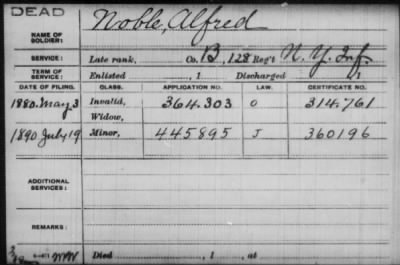 DEAD
NAME OF SOLDIER: Noble, Alfred
SERVICE: Late rank, Co. B, 128 Reg't N.Y. Inf.
TERM OF SERVICE: Enlisted , 1 Discharged , 1
DATE OF FILING. CLASS. APPLICATION NO. LAW. CERTIFICATE NO.
1880. May 3 Invalid, 364.303 O 314.761
Widow,
1890 July 19 Minor, 445895 J 360196
ADDITIONAL SERVICES:
REMARKS:
Died , 1 , at